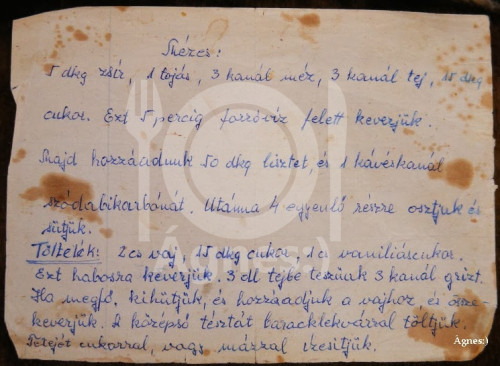 Mézes:
5 dkg zsír, 1 tojás, 3 kanál méz, 3 kanál tej, 15 dkg
cukor. Ezt 5 percig forróvíz felett keverjük.
Majd hozzáadunk 50 dkg lisztet, és 1 kávéskanál
szódabikarbónát. Utánna 4 egyenlő részre osztjuk és
sütjük.
Töltelék: 2 cs vaj, 15 dkg cukor, 1 cs vaniliáscukor.
Ezt habosra keverjük. 3 dl tejbe teszünk 3 kanál grízt.
Ha megfő, kihűtjük, és hozzáadjuk a vajhoz, és össze-
keverjük. A középső tésztát baracklekvárral töltjük.
Tetejét cukorral, vagy mázzal ízesitjük.
Ágnes:)
Agnes:)